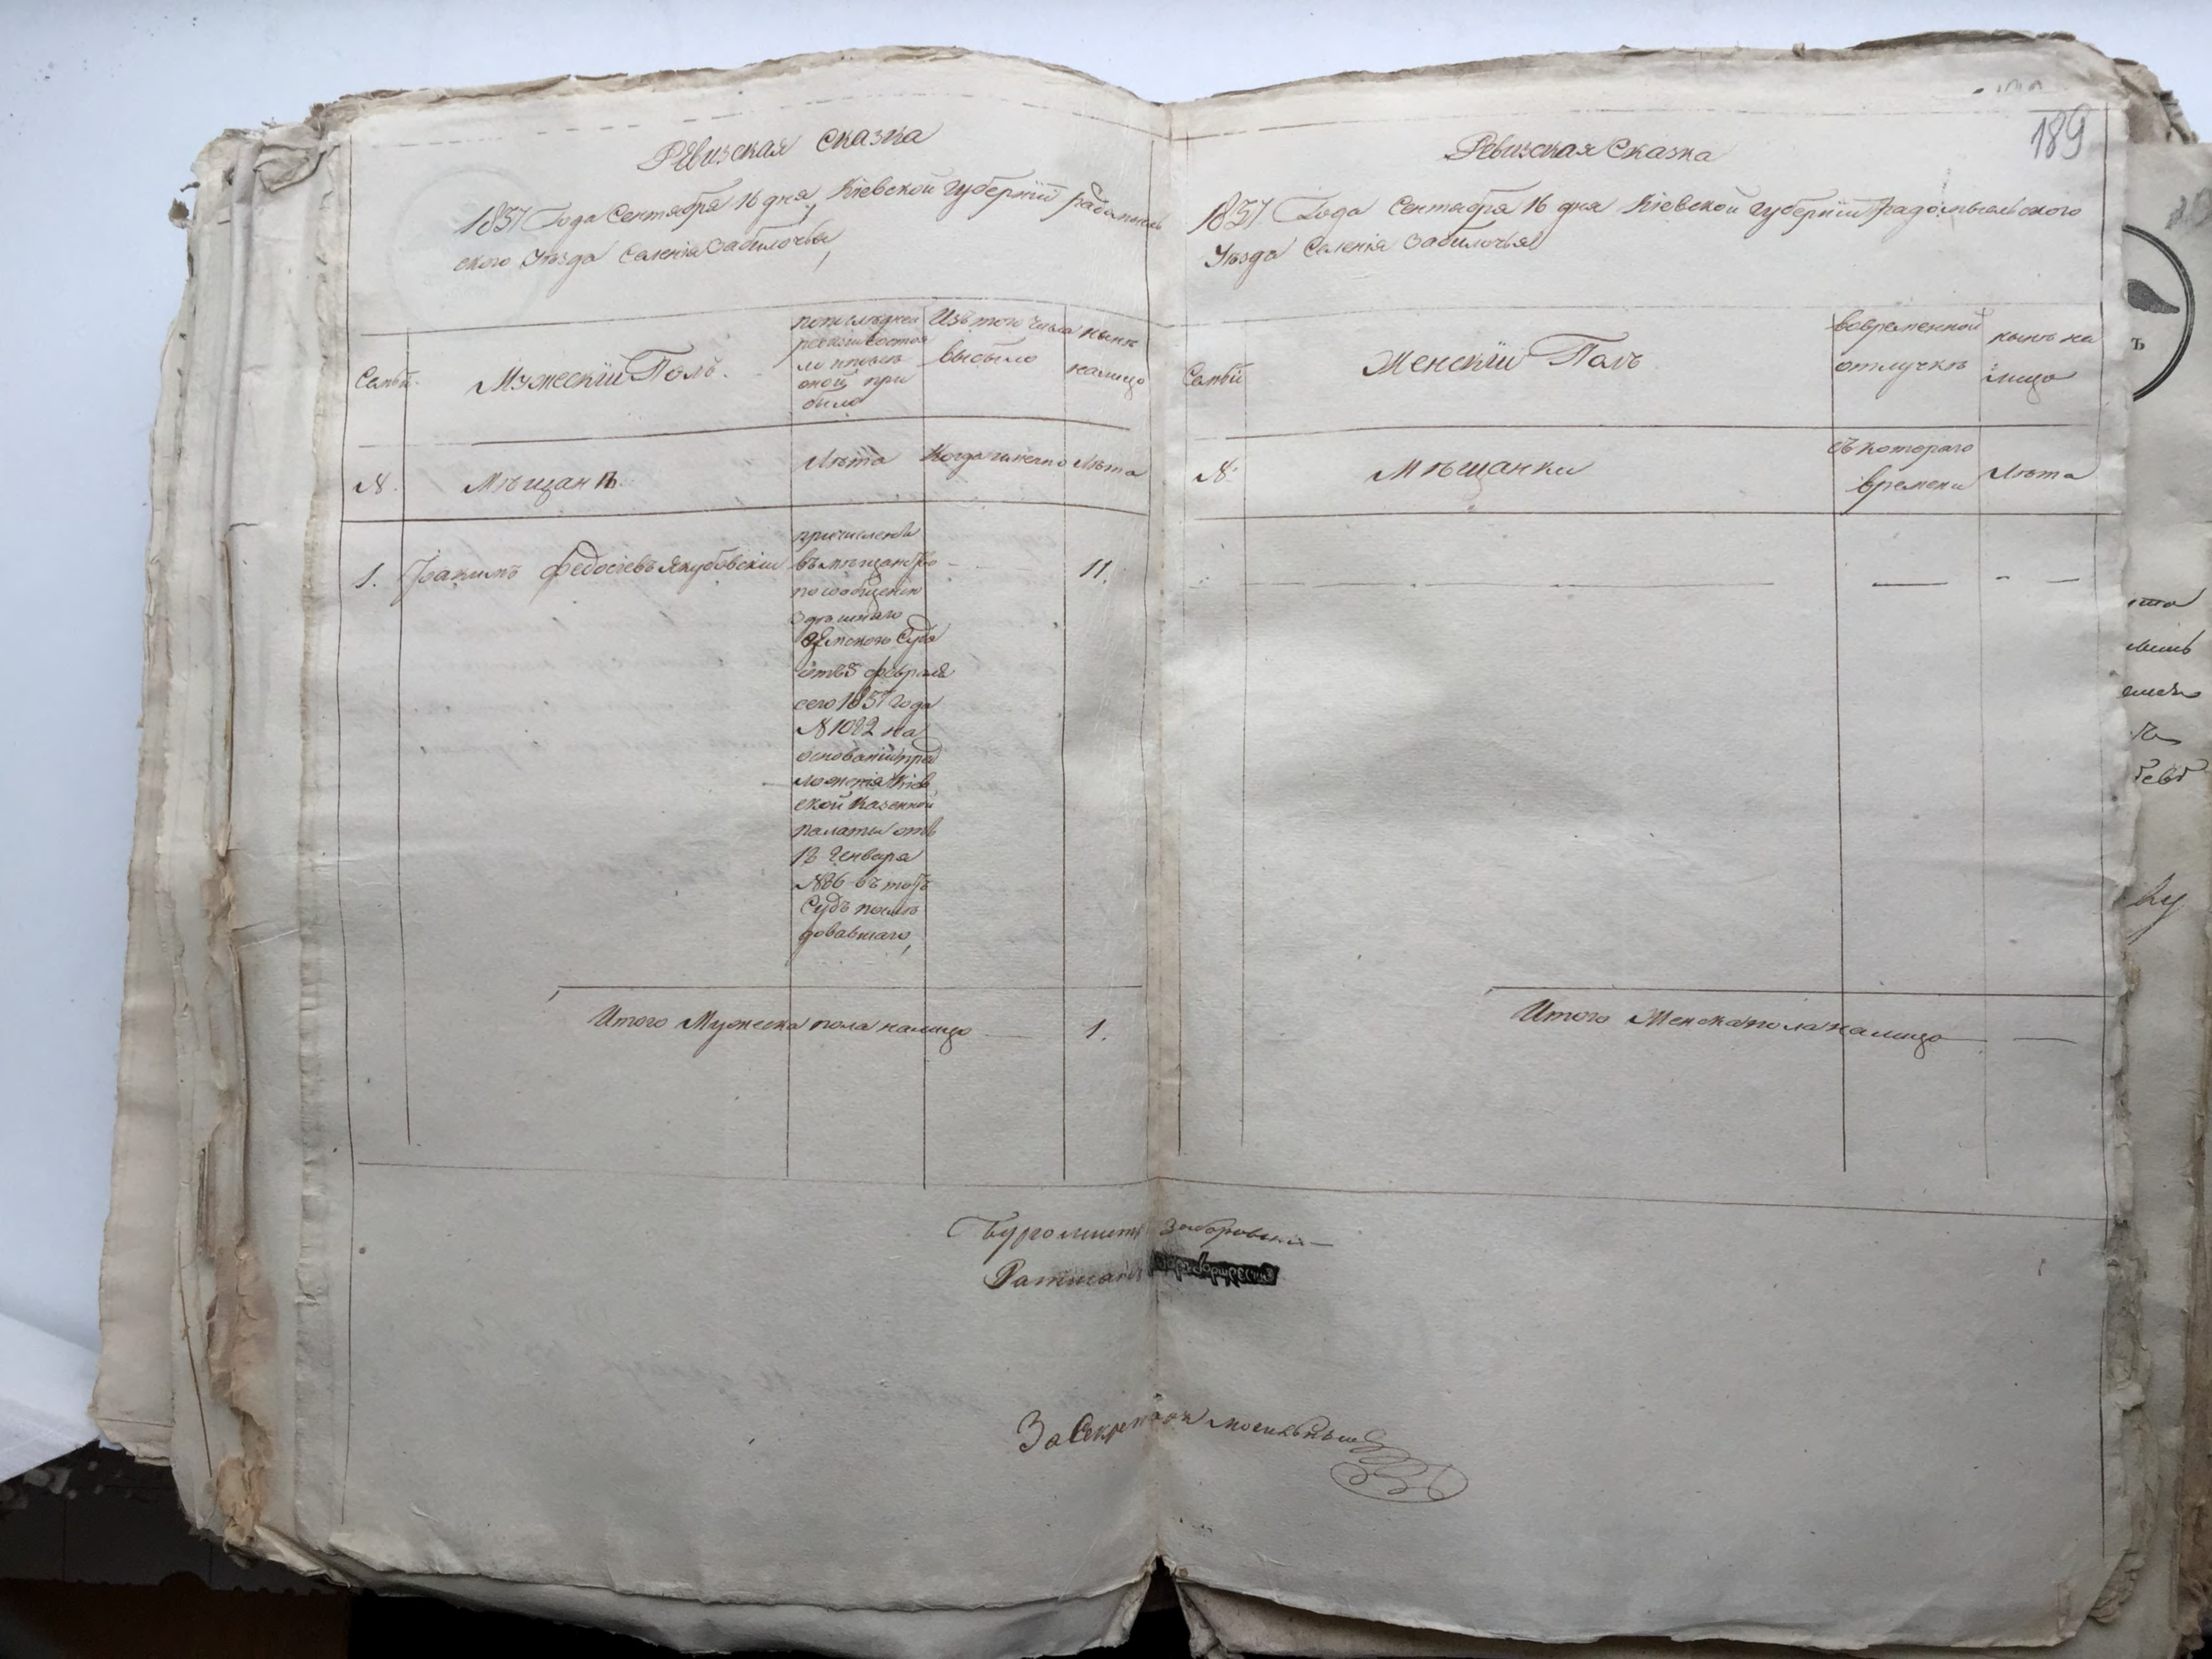 Ревизская Сказка
1857 Года Сентября 16 дня, Кіевской Губерніи Радомысль
ского Уѣзда Селенія Забилочья,
Семьи.
Мужескій Полъ.
по последней
ревизіи состоя
ло и после
оной при
было
Изъ того числа
выбыло
нынѣ
налицо
N.
Мѣщанѣ.
Лѣта
Когда именно
Лѣта
1.
Іоакимъ Федосіевъ Якубовскій
причисленъ
въ мѣщанство
по сообщенію
здѣшняго
Земского Суда
отъ 5 февраля
сего 1857 года
N 1022 на
основаніи пред
ложенія Кіев
ской Казенной
палаты отъ
13 Генваря
N 86 въ тотъ
Судъ послѣ
довавшаго,
11.
Итого Мужеска пола налицо
1.
189
Ревизская Сказка
1857 Года Сентября 16 дня Кіевской Губерніи Радомысльского
Уѣзда Селенія Забилочья
Семьи
Женскій Полъ
во временной
отлучкѣ
нынѣ на
лицо
N:
Мѣщанки
съ котораго
времени
Лѣта
Итого Женска пола налицо
Бургомистръ Заборовскій
Ратманъ
За Секретаря